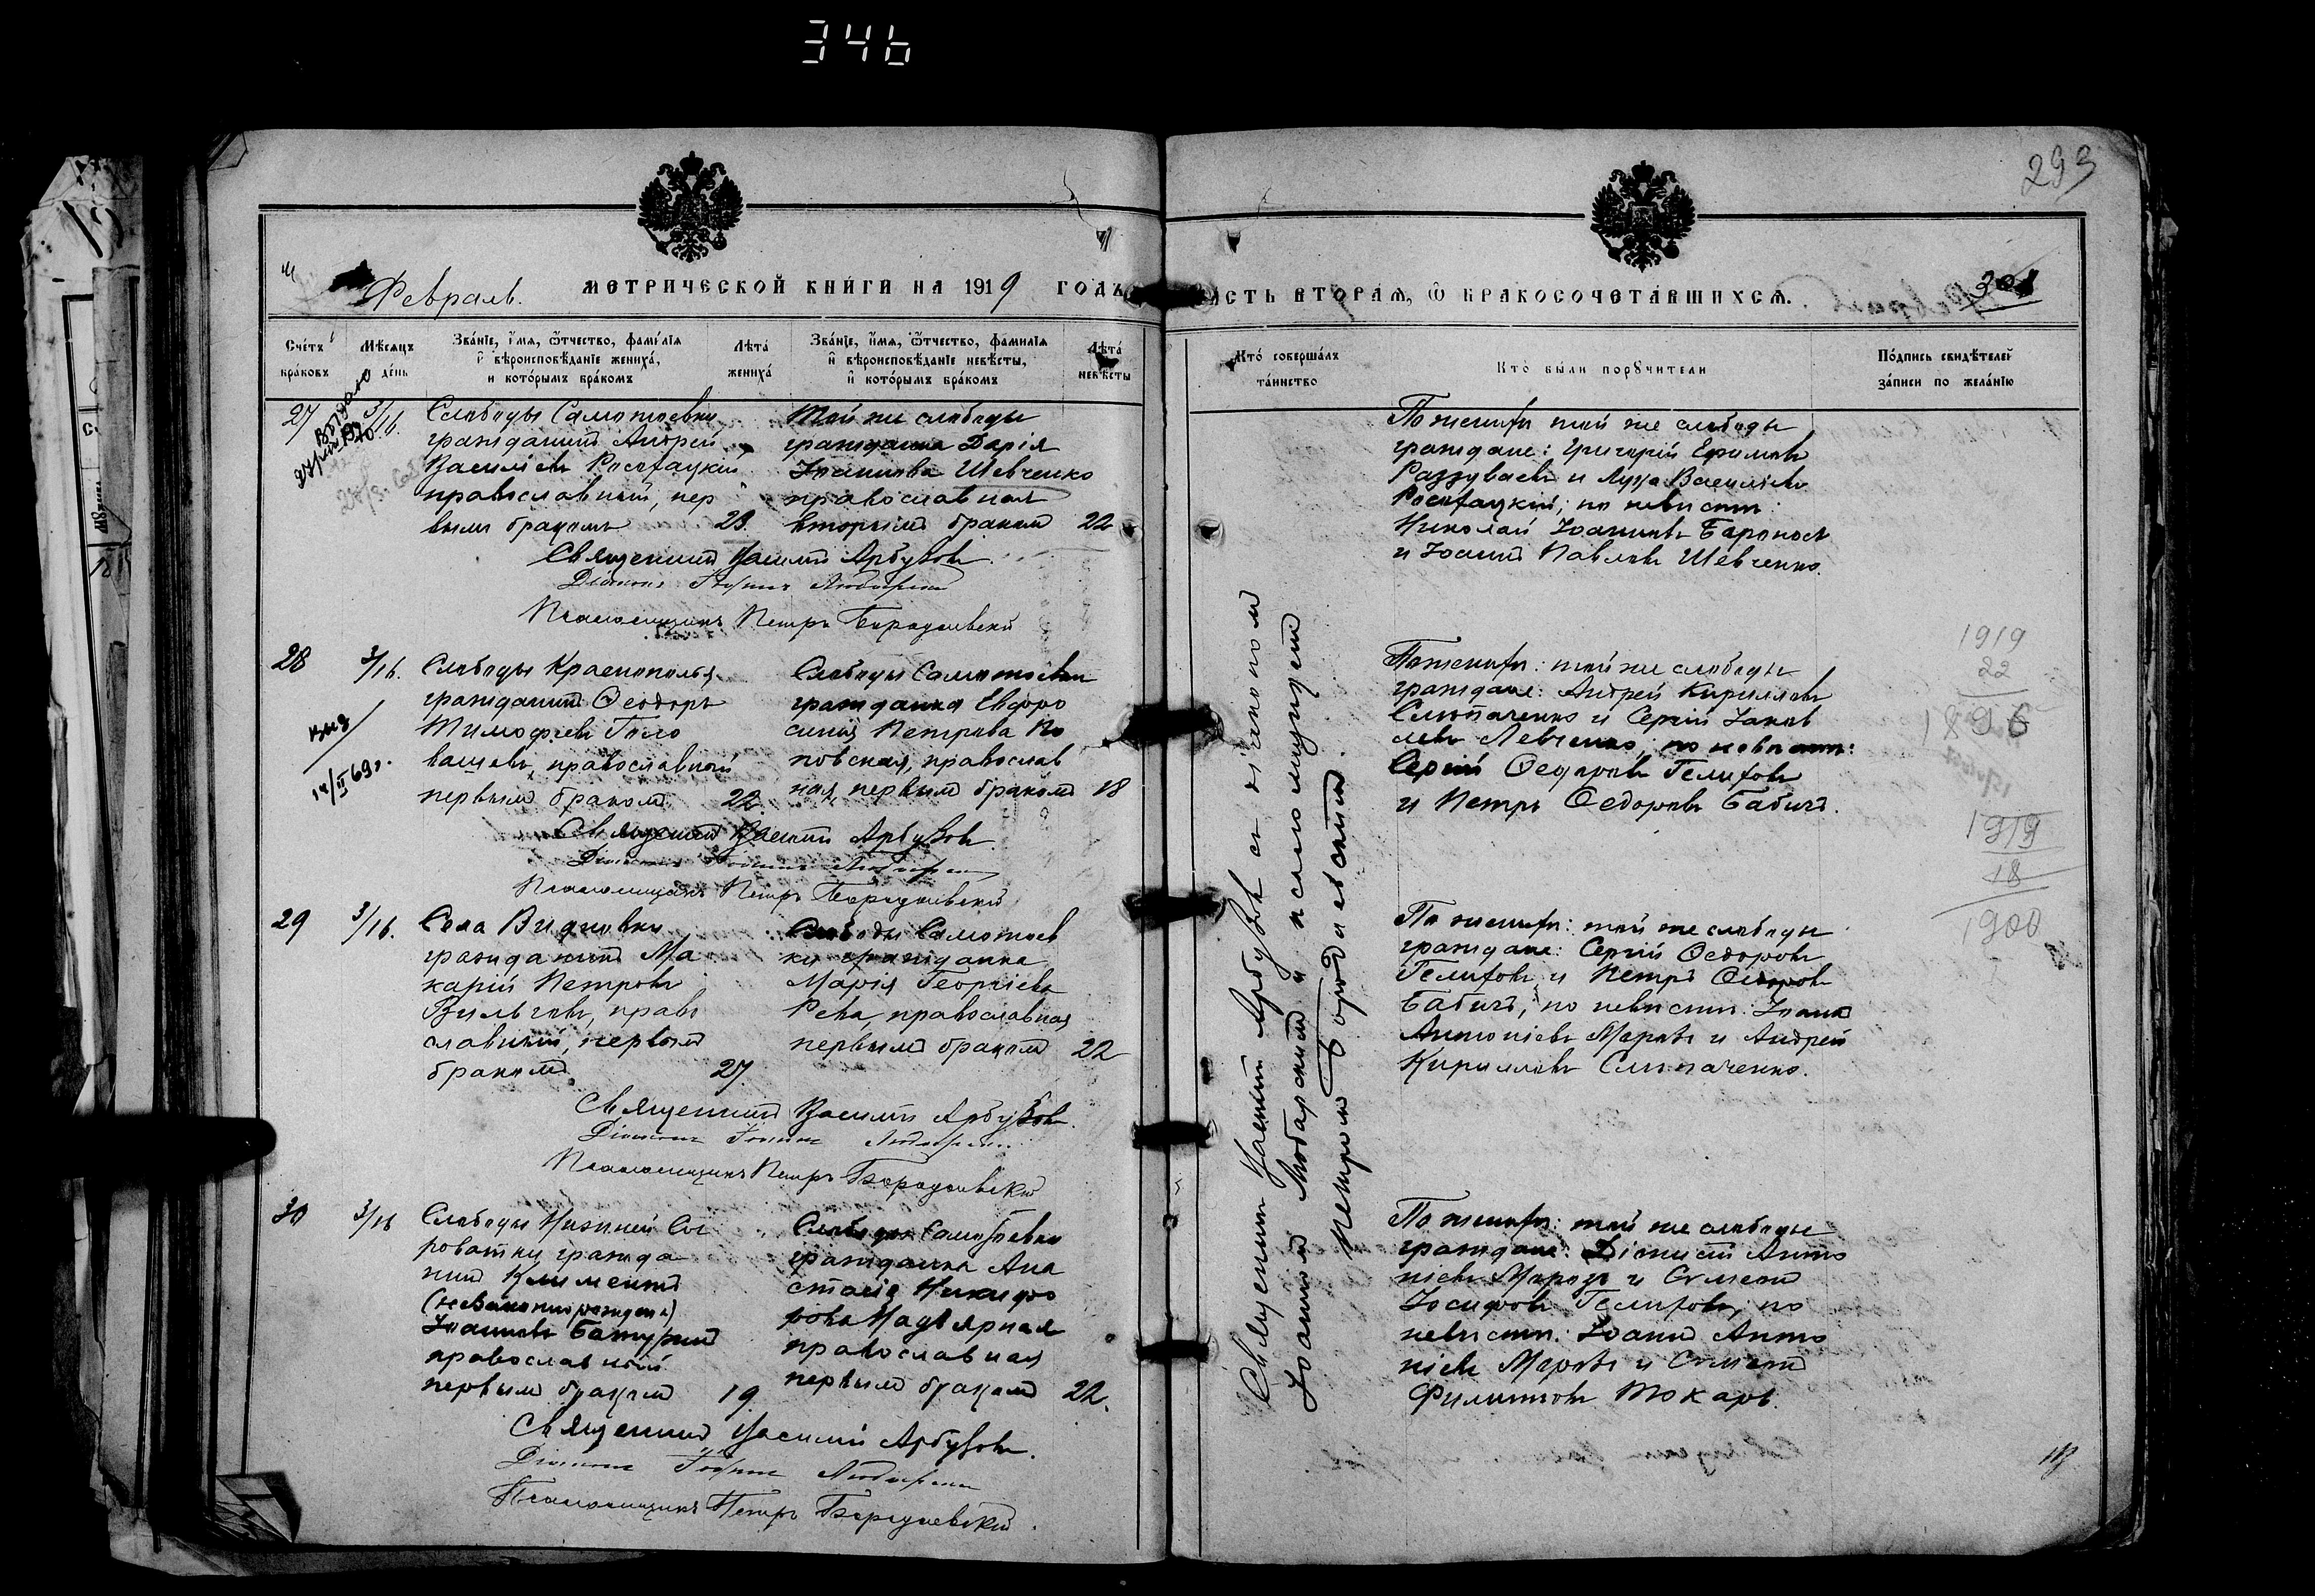 346
293
Февраль.
МЕТРИЧЕСКОЙ КНИГИ НА 1919 ГОДЪ
ЧАСТЬ ВТОРАЯ, Ѿ БРАКОСОЧЕТАВШИХСЯ.
301
Счётъ браковъ
Мѣсяцъ день
Званіе, имя, ѿтчество, фамилія
и вѣроисповѣданіе жениха,
и которымъ бракомъ
Лѣта
жениха
Званіе, имя, ѿтчество, фамилія
и вѣроисповѣданіе невѣсты,
и которымъ бракомъ
Лѣта
невѣсты
Кто совершалъ
таинство
Кто были поручители
Подпись свидѣтелей
записи по желанію
27
3/16.
Слободы Самотоевки
гражданинъ Андрей
Василіевъ
православный, пер
вымъ бракомъ 23.
Той же слободы
гражданка Дарія
Іоаннова Шевченко
православная
вторымъ бракомъ 22
Священникъ Василій Арбузовъ.
Псаломщикъ Петръ Бородаевскій
По женихѣ той же слободы
граждане: Григорій Ефимовъ
Раздуваевъ и Лука Василіевъ
по невѣстѣ:
Николай Іоанновъ
и Іоаннъ Павловъ Шевченко.
28
3/16.
Слободы Краснополья
гражданинъ Ѳеодоръ
Тимофеевъ Голо
вашевъ, православный
первымъ бракомъ 22
Слободы Самотоевки
гражданка Евфро
синія Петрова По
повская, православ
ная, первымъ бракомъ 18
Священникъ Василій Арбузовъ
Псаломщикъ Петръ Бородаевскій
По женихѣ: той же слободы
граждане: Андрей Кирилловъ
Слюпаченко и Сергій Іаков
левъ Левченко; по невѣстѣ:
Сергій Ѳедоровъ Гелиховъ
и Петръ Ѳедоровъ Бабичъ.
1919
22
1896
1919
18
1900
29
3/16.
Села Видновки
гражданинъ Ма
карій Петровъ
право
славный, первымъ
бракомъ 27
Слободы Самотоев
ки гражданка
Марія Георгіева
Рева, православная
первымъ бракомъ 22
Священникъ Василій Арбузовъ.
Псаломщикъ Петръ Бородаевскій
По женихѣ: той же слободы
граждане: Сергій Ѳедоровъ
Гелиховъ и Петръ Ѳедоровъ
Бабичъ, по невѣстѣ: Іоаннъ
Антоніевъ и Андрей
Кирилловъ Слюпаченко.
30
3/16
Слободы Нижней Сы
роватки гражда
нинъ Климентъ
(незаконнорожден.)
Іоанновъ
православный
первымъ бракомъ 19
Слободы Самотоевки
гражданка Ана
стасія Никифо
рова
православная
первымъ бракомъ 22.
Священникъ Василій Арбузовъ.
Псаломщикъ Петръ Бородаевскій.
По женихѣ: той же слободы
граждане: Діонисій Анто
ніевъ и Симеонъ
Іосифовъ Гелиховъ, по
невѣстѣ: Іоаннъ Анто
ніевъ и Симеонъ
Филипповъ Токарь.
Священникъ Василій Арбузовъ съ діакономъ
Іоанномъ и псаломщикомъ
Петромъ Бородаевскимъ.